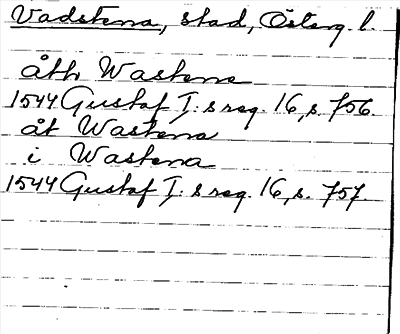 Vadstena, stad, Österg. l.
åth Wastena
1544 Gustaf I:s reg. 16, s. 756.
åt Wastena
i Wastena
1544 Gustaf I:s reg. 16, s. 757.